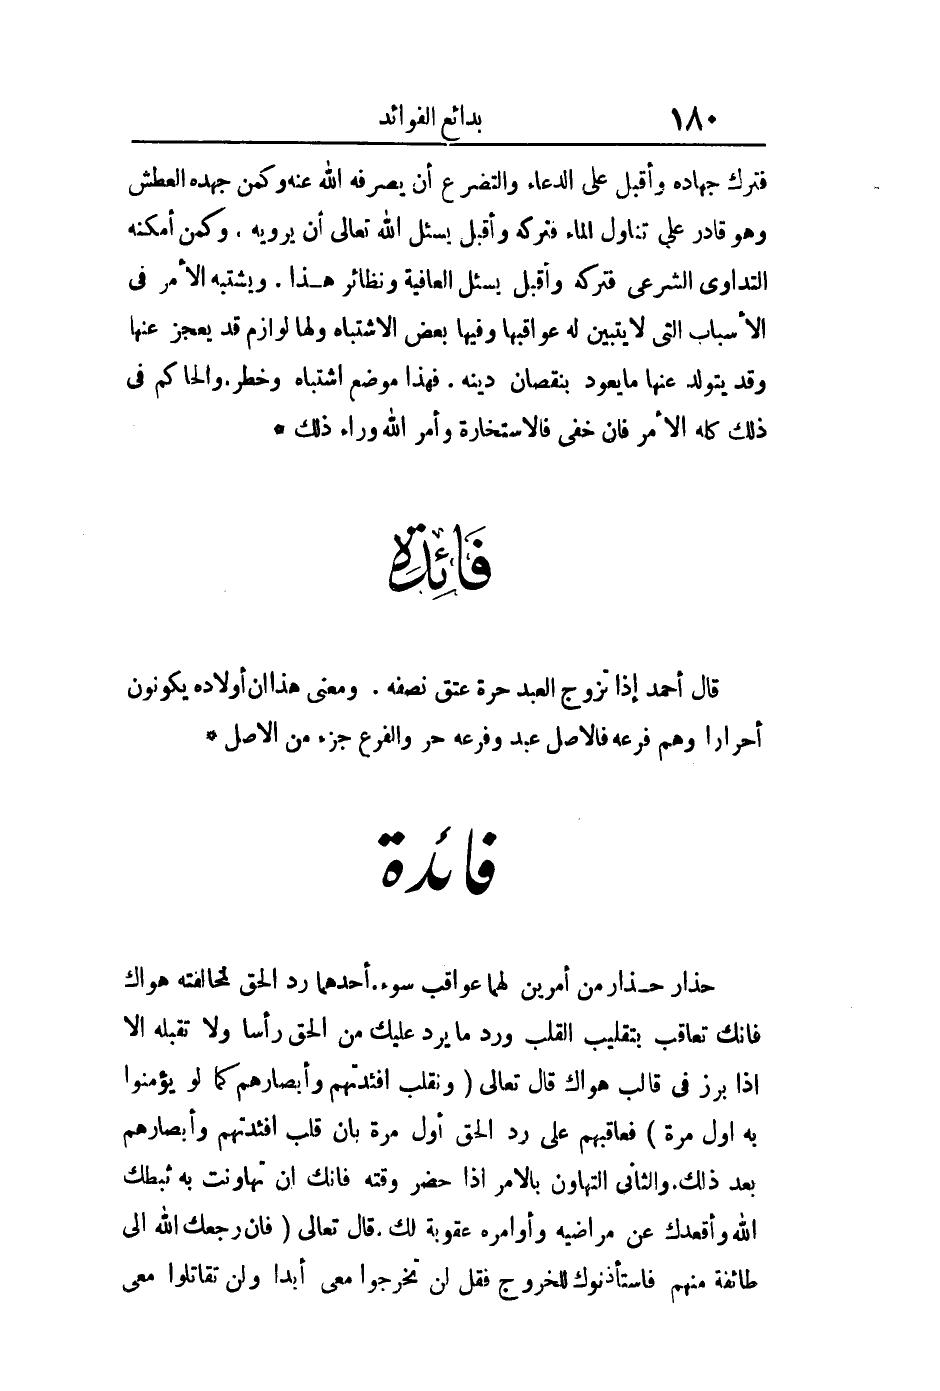 ١٨٠ بدائع الفوائد
فترك جهاده وأقبل على الدعاء والتضرع أن يصرفه الله عنه وكمن جهده العطش
وهو قادر علي تناول الماء فتركه وأقبل يسئل الله تعالى أن يرويه . وكمن أمكنه
التداوى الشرعى فتركه وأقبل يسئل العافية ونظائر هـذا . ويشتبه الأمر فى
الأسباب التى لا يتبين له عواقبها وفيها بعض الاشتباه ولها لوازم قد يعجز عنها
وقد يتولد عنها ما يعود بنقصان دينه . فهذا موضع اشتباه وخطر. والحاكم فى
ذلك كله الأمر فان خفى فالاستخارة وأمر الله وراء ذلك *
فَائِدَة
قال أحمد إذا تزوج العبد حرة عتق نصفه . ومعنى هذا ان أولاده يكونون
أحرارا وهم فرعه فالاصل عبد وفرعه حر والفرع جزء من الاصل *
فائدة
حذار حـذار من أمرين لهما عواقب سوء. أحدهما رد الحق لمخالفته هواك
فانك تعاقب بتقليب القلب ورد ما يرد عليك من الحق رأسا ولا تقبله الا
اذا برز فى قالب هواك قال تعالى ( ونقلب افئدتهم وأبصارهم كما لو يؤمنوا
به اول مرة ) فعاقبهم على رد الحق أول مرة بان قلب افئدتهم وأبصارهم
بعد ذلك. والثانى التهاون بالامر اذا حضر وقته فانك ان تهاونت به ثبطك
الله وأقعدك عن مراضيه وأوامره عقوبة لك . قال تعالى ( فان رجعك الله الى
طائفة منهم فاستأذنوك للخروج فقل لن تخرجوا معى أبدا ولن تقاتلوا معى